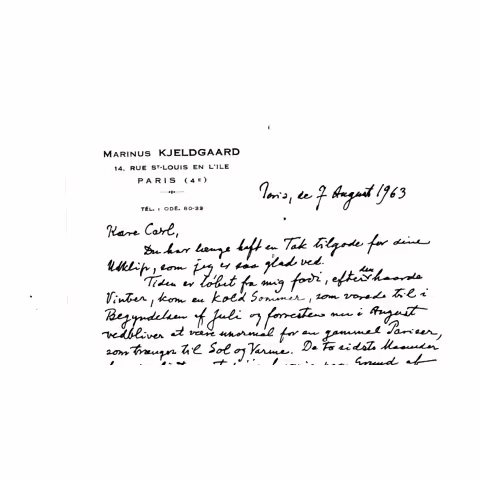 MARINUS KJELDGAARD
14, RUE ST-LOUIS EN L'ILE
PARIS (4E)
TÉL. : ODÉ. 80-33
Paris, de 7 August 1963
Kære Carl,
Du har længe haft en Tak tilgode for dine
Udklip, som jeg er saa glad ved.
Tiden er løbet fra mig fordi, efter den haarde
Vinter, kom en kold Sommer, som varede til i
Begyndelsen af Juli og forresten nu i August
vedbliver at være unormal for en gammel Pariser,
som trænger til Sol og Varme. De To sidste Maaneder
Grund af